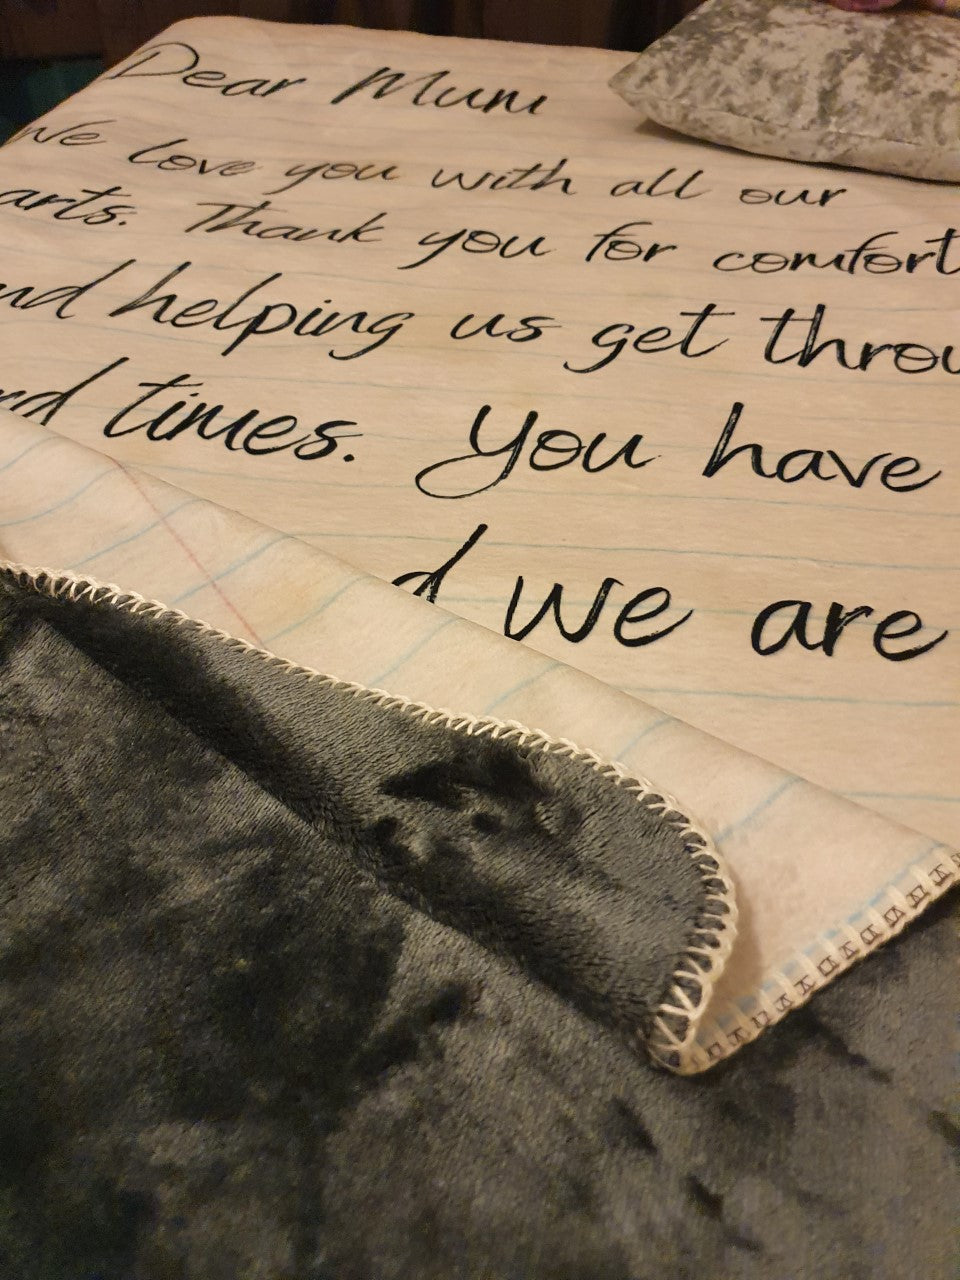 Dear Mum
We love you with all our
arts. Thank you for comfort
nd helping us get throu
rd times. You have
d we are